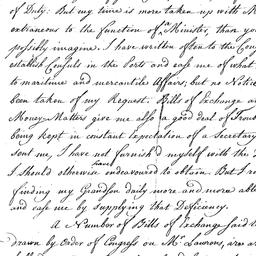 of Duty: But my time is more taken up with M
extraneous to the function of a Minister, than you
possibly imagine. I have written often to the Con
establish Consuls in the Ports and ease me of what
to maritime and mercantile Affairs; but no Notice
been taken of my Request. Bills of Exchange a
Money Matters give me also a good deal of Trou
being kept in constant Expectation of a Secretary
sent me, I have not furnish'd myself with the
I should otherwise have endeavoured to obtain. But I
finding my Grandson daily more and more able
and ease me by supplying that Deficiency.
A Number of Bills of Exchange said
drawn by Order of Congress on Mr. Laurens, are